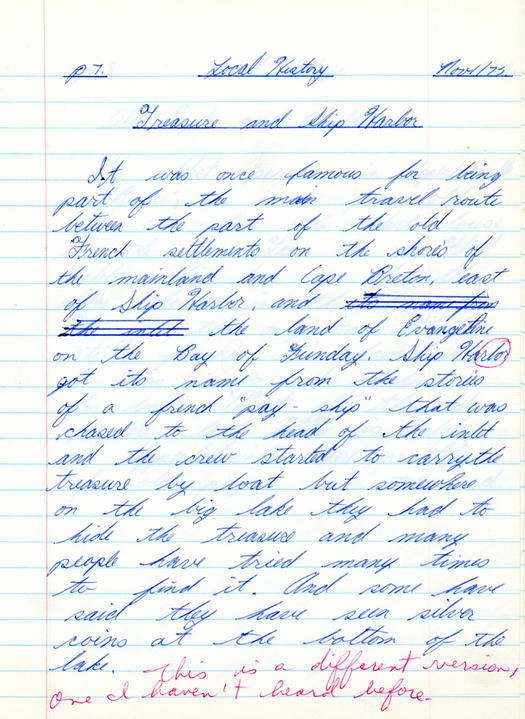 p 7. Local History Nov 1/75.
Treasure and Ship Harbor
It was once famous for being
part of the main travel route
between the part of the old
French settlements on the shores of
the mainland and Cape Breton, east
of Ship Harbor, and its name from
the inlet the land of Evangeline
on the Bay of Funday. Ship Harbor
got its name from the stories
of a french "pay-ship" that was
chased to the head of the inlet
and the crew started to carry the
treasure by boat but somewhere
on the big lake they had to
hide the treasure and many
people have tried many times
to find it. And some have
said they have seen silver
coins at the bottom of the
lake. This is a different version,
one I haven't heard before.